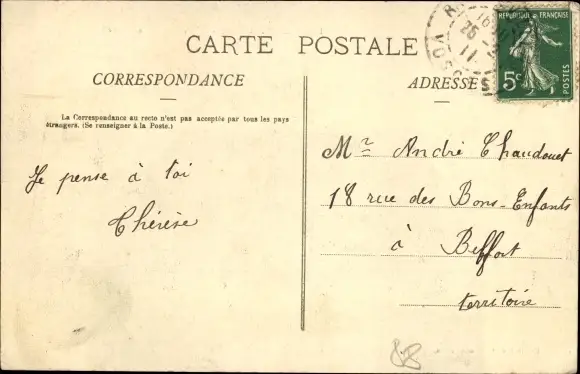 CARTE POSTALE
CORRESPONDANCE
ADRESSE
RÉPUBLIQUE FRANÇAISE
5c
POSTES
La Correspondance au recto n'est pas acceptée par tous les pays
étrangers. (Se renseigner à la Poste.)
Je pense à toi
Thérèse
Mr André Chaudouet
18 rue des Bons-Enfants
à Belfort
territoire